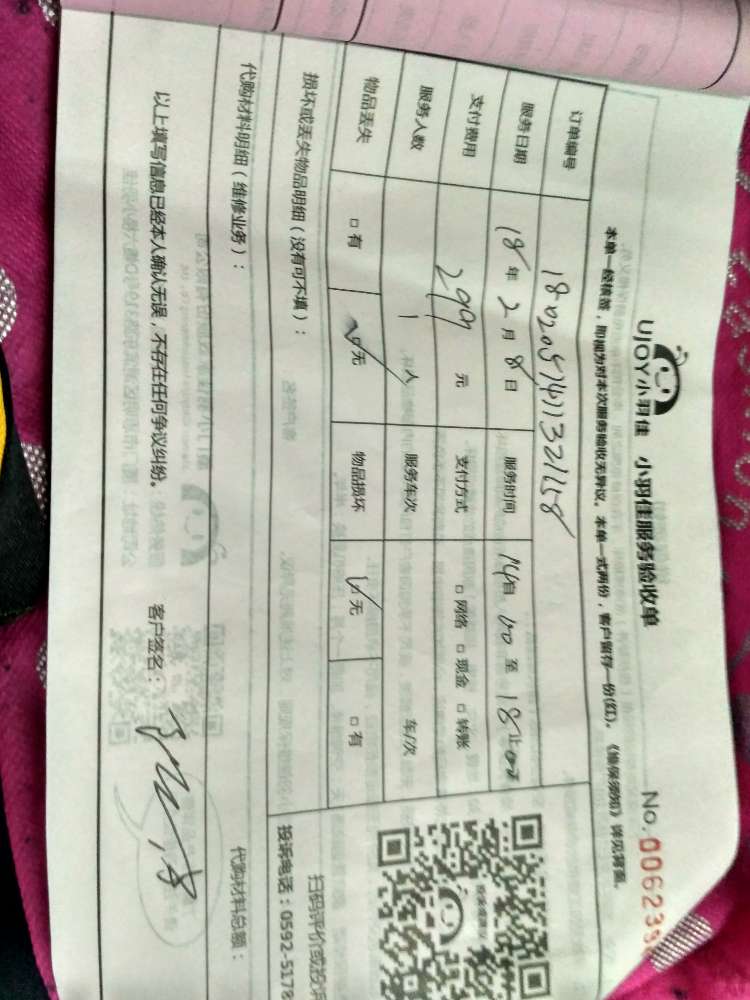 UJOY小羽佳 小羽佳服务验收单
No.006239
本单一经核签，即视为对本次服务验收无异议。本单一式两份，客户留存一份(红)。《维保须知》详见背面。
订单编号
服务日期 18年2月8日 服务时间 14自:00至18止:00
支付费用 299元 支付方式 □网络 □现金 □转账
服务人数 1人 服务车次 车/次
物品丢失 □有 ☑无 物品损坏 ☑无 □有
损坏或丢失物品明细（没有可不填）：
扫码评价或投诉
投诉电话：0592-5178
代购材料明细（维修业务）： 代购材料总额：
以上填写信息已经本人确认无误，不存在任何争议纠纷。 客户签名：